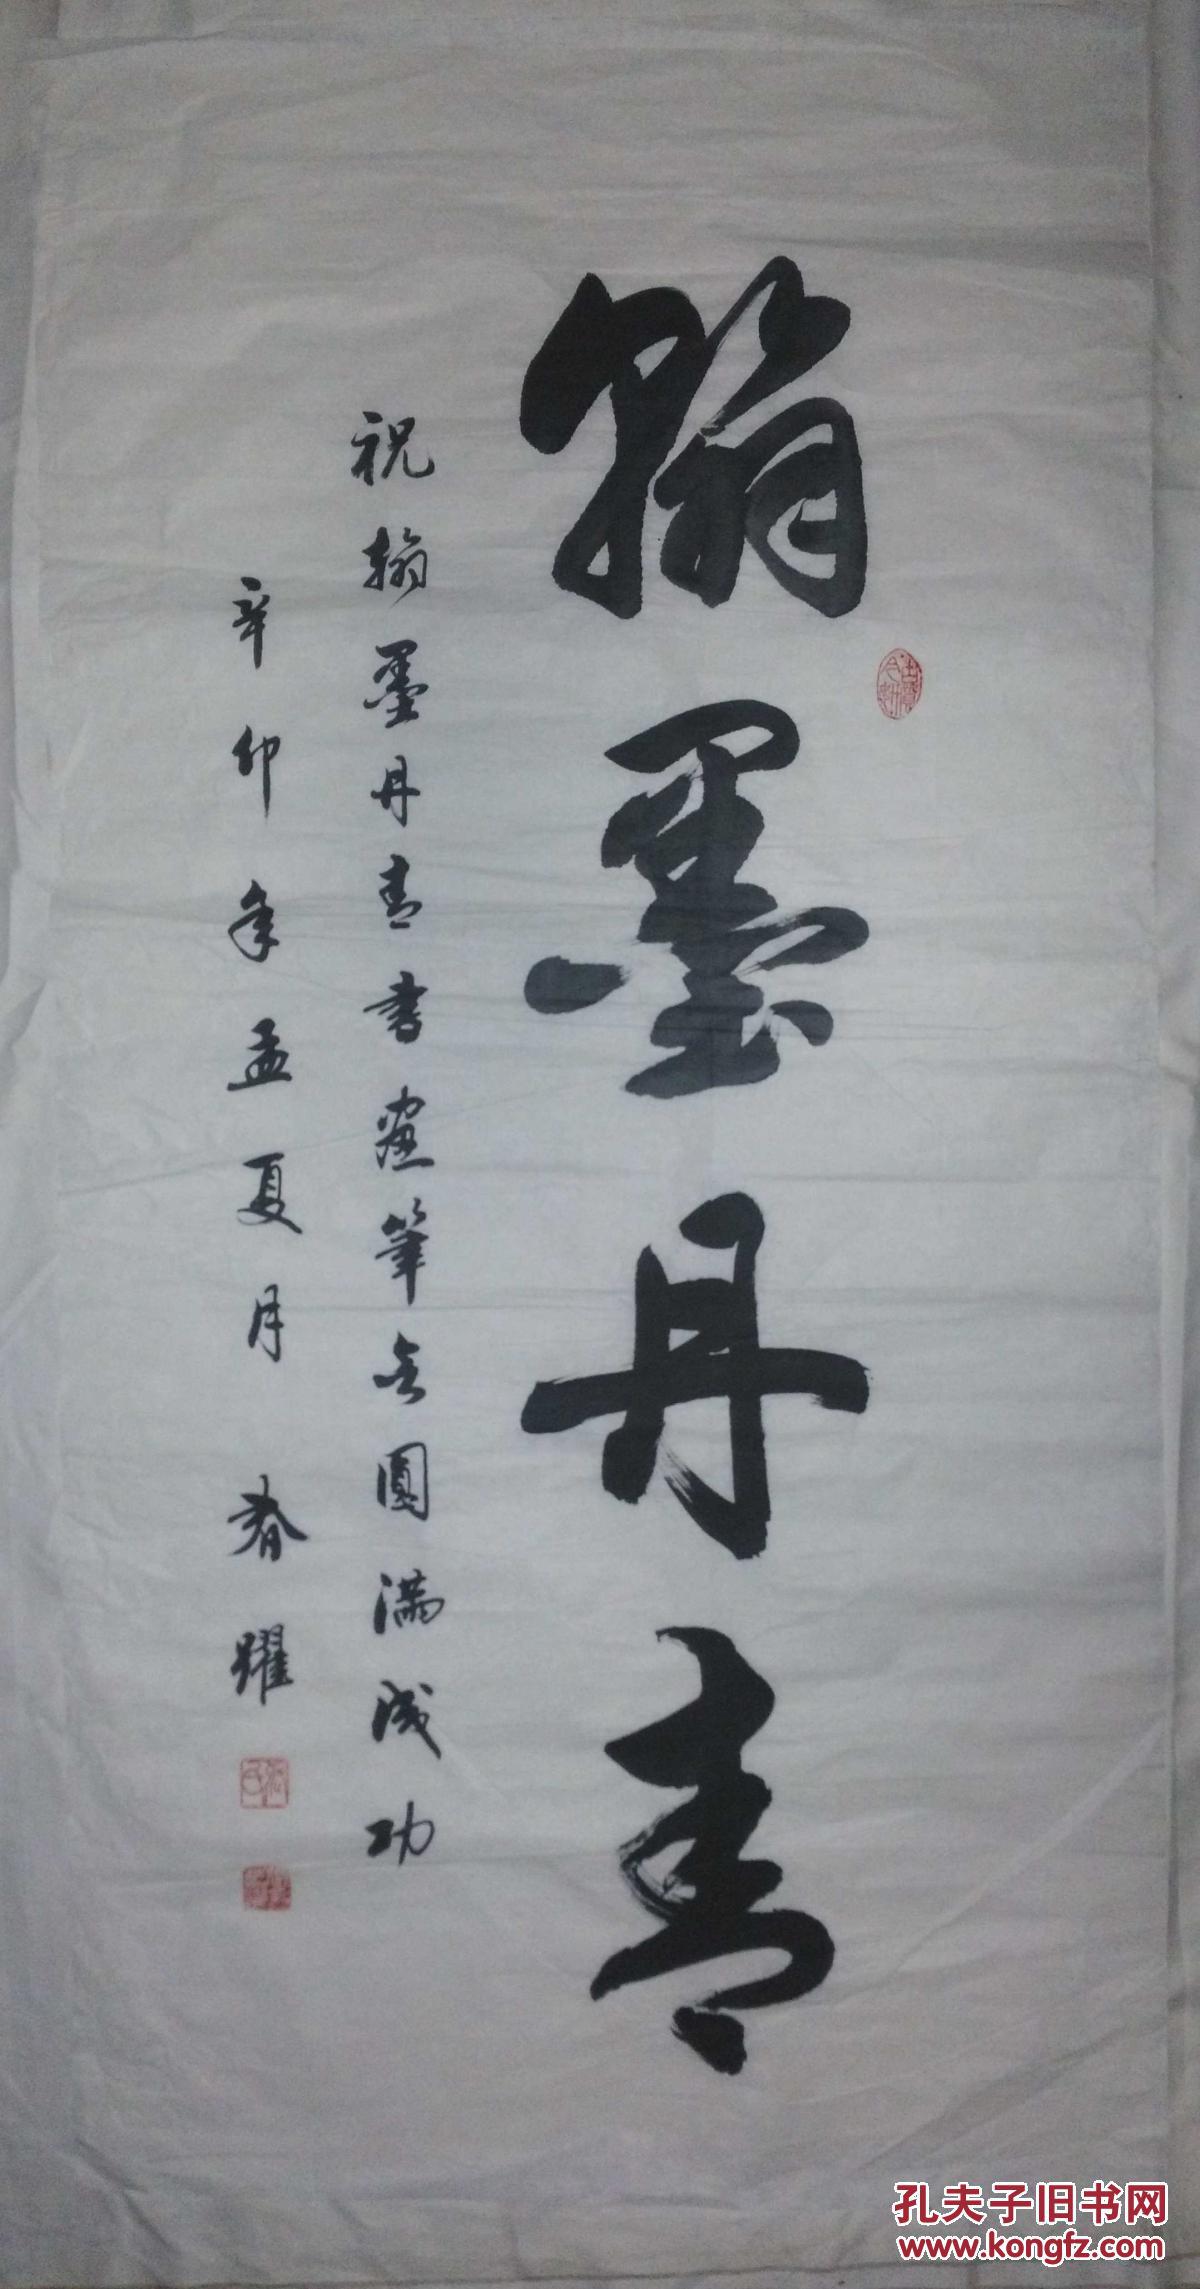 翰墨丹青
祝翰墨丹青书画筆会圓满成功
辛卯年孟夏月 春躍
孔夫子旧书网
www.kongfz.com